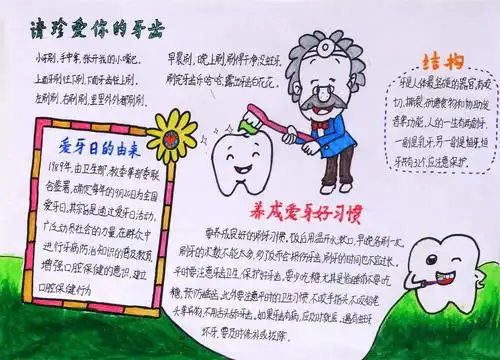 请珍爱你的牙齿
小牙刷,手中拿,张开我的小嘴巴。
上面牙往下刷,下面牙齿往上刷。
左刷刷,右刷刷,里里外外都刷刷。
早晨刷,晚上刷,刷得干净没蛀牙。
刷完牙齿乐哈哈,露出牙齿白花花。
结构
牙是人体最坚硬的器官,有咬
切、撕裂、
食物和协助发
音等功能,人的一生有两副牙,
一副是乳牙,另一副是恒牙,恒
牙共有32个,应注意保护。
爱牙日的由来
1989年,由卫生部、教委等部委联
合签署,确定每年的9月20日为全国
爱牙日,其宗旨是通过爱牙日活动,
广泛动员社会的力量,在群众中
进行牙病防治知识的普及教育,
增强口腔保健的意识,建立
口腔保健行为
养成爱牙好习惯
要养成良好的刷牙习惯,饭后用温开水漱口,早晚各刷一次,
刷牙的次数不能太多,多了反而会损伤牙齿,刷牙的时间也不宜过长,
平时要注意牙齿卫生,保护好牙齿,要少吃糖,尤其是临睡前不要吃
糖,预防龋齿,此外要注意平时的卫生习惯,不咬手指头,不咬铅笔
头等异物,不用舌头舔牙齿,如果牙齿有病,应及时就医,遇有蛀牙
坏牙,要及时修补或拔除。